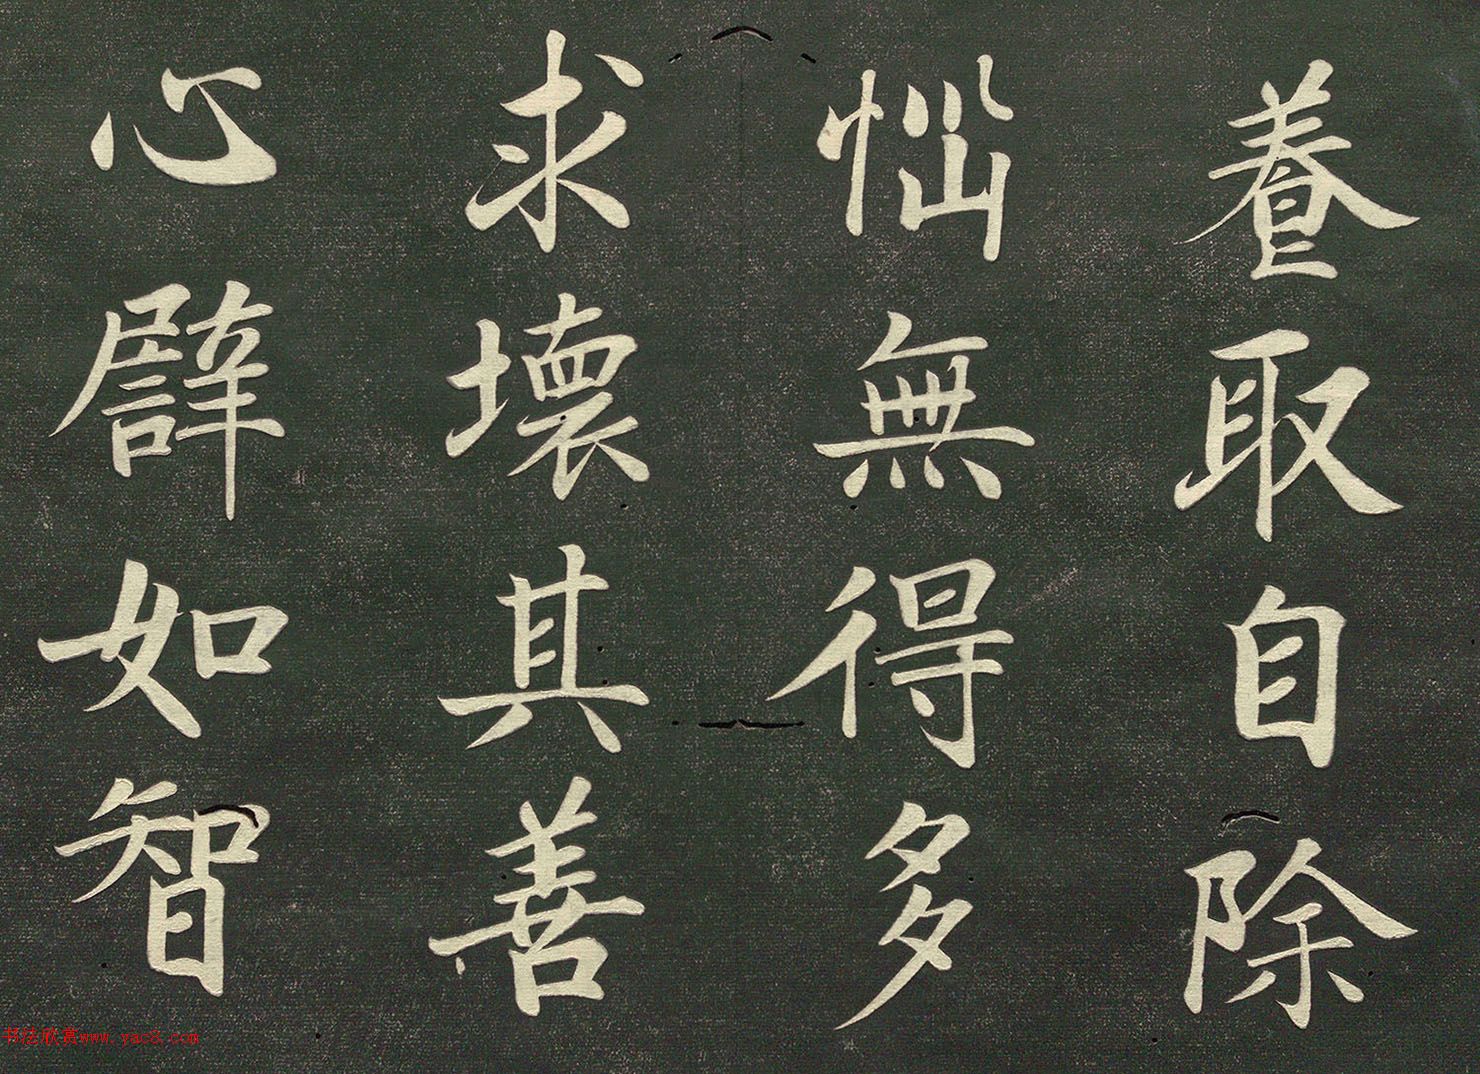 養取自除
惱無得多
求壞其善
心譬如智
书法欣赏www.yac8.com